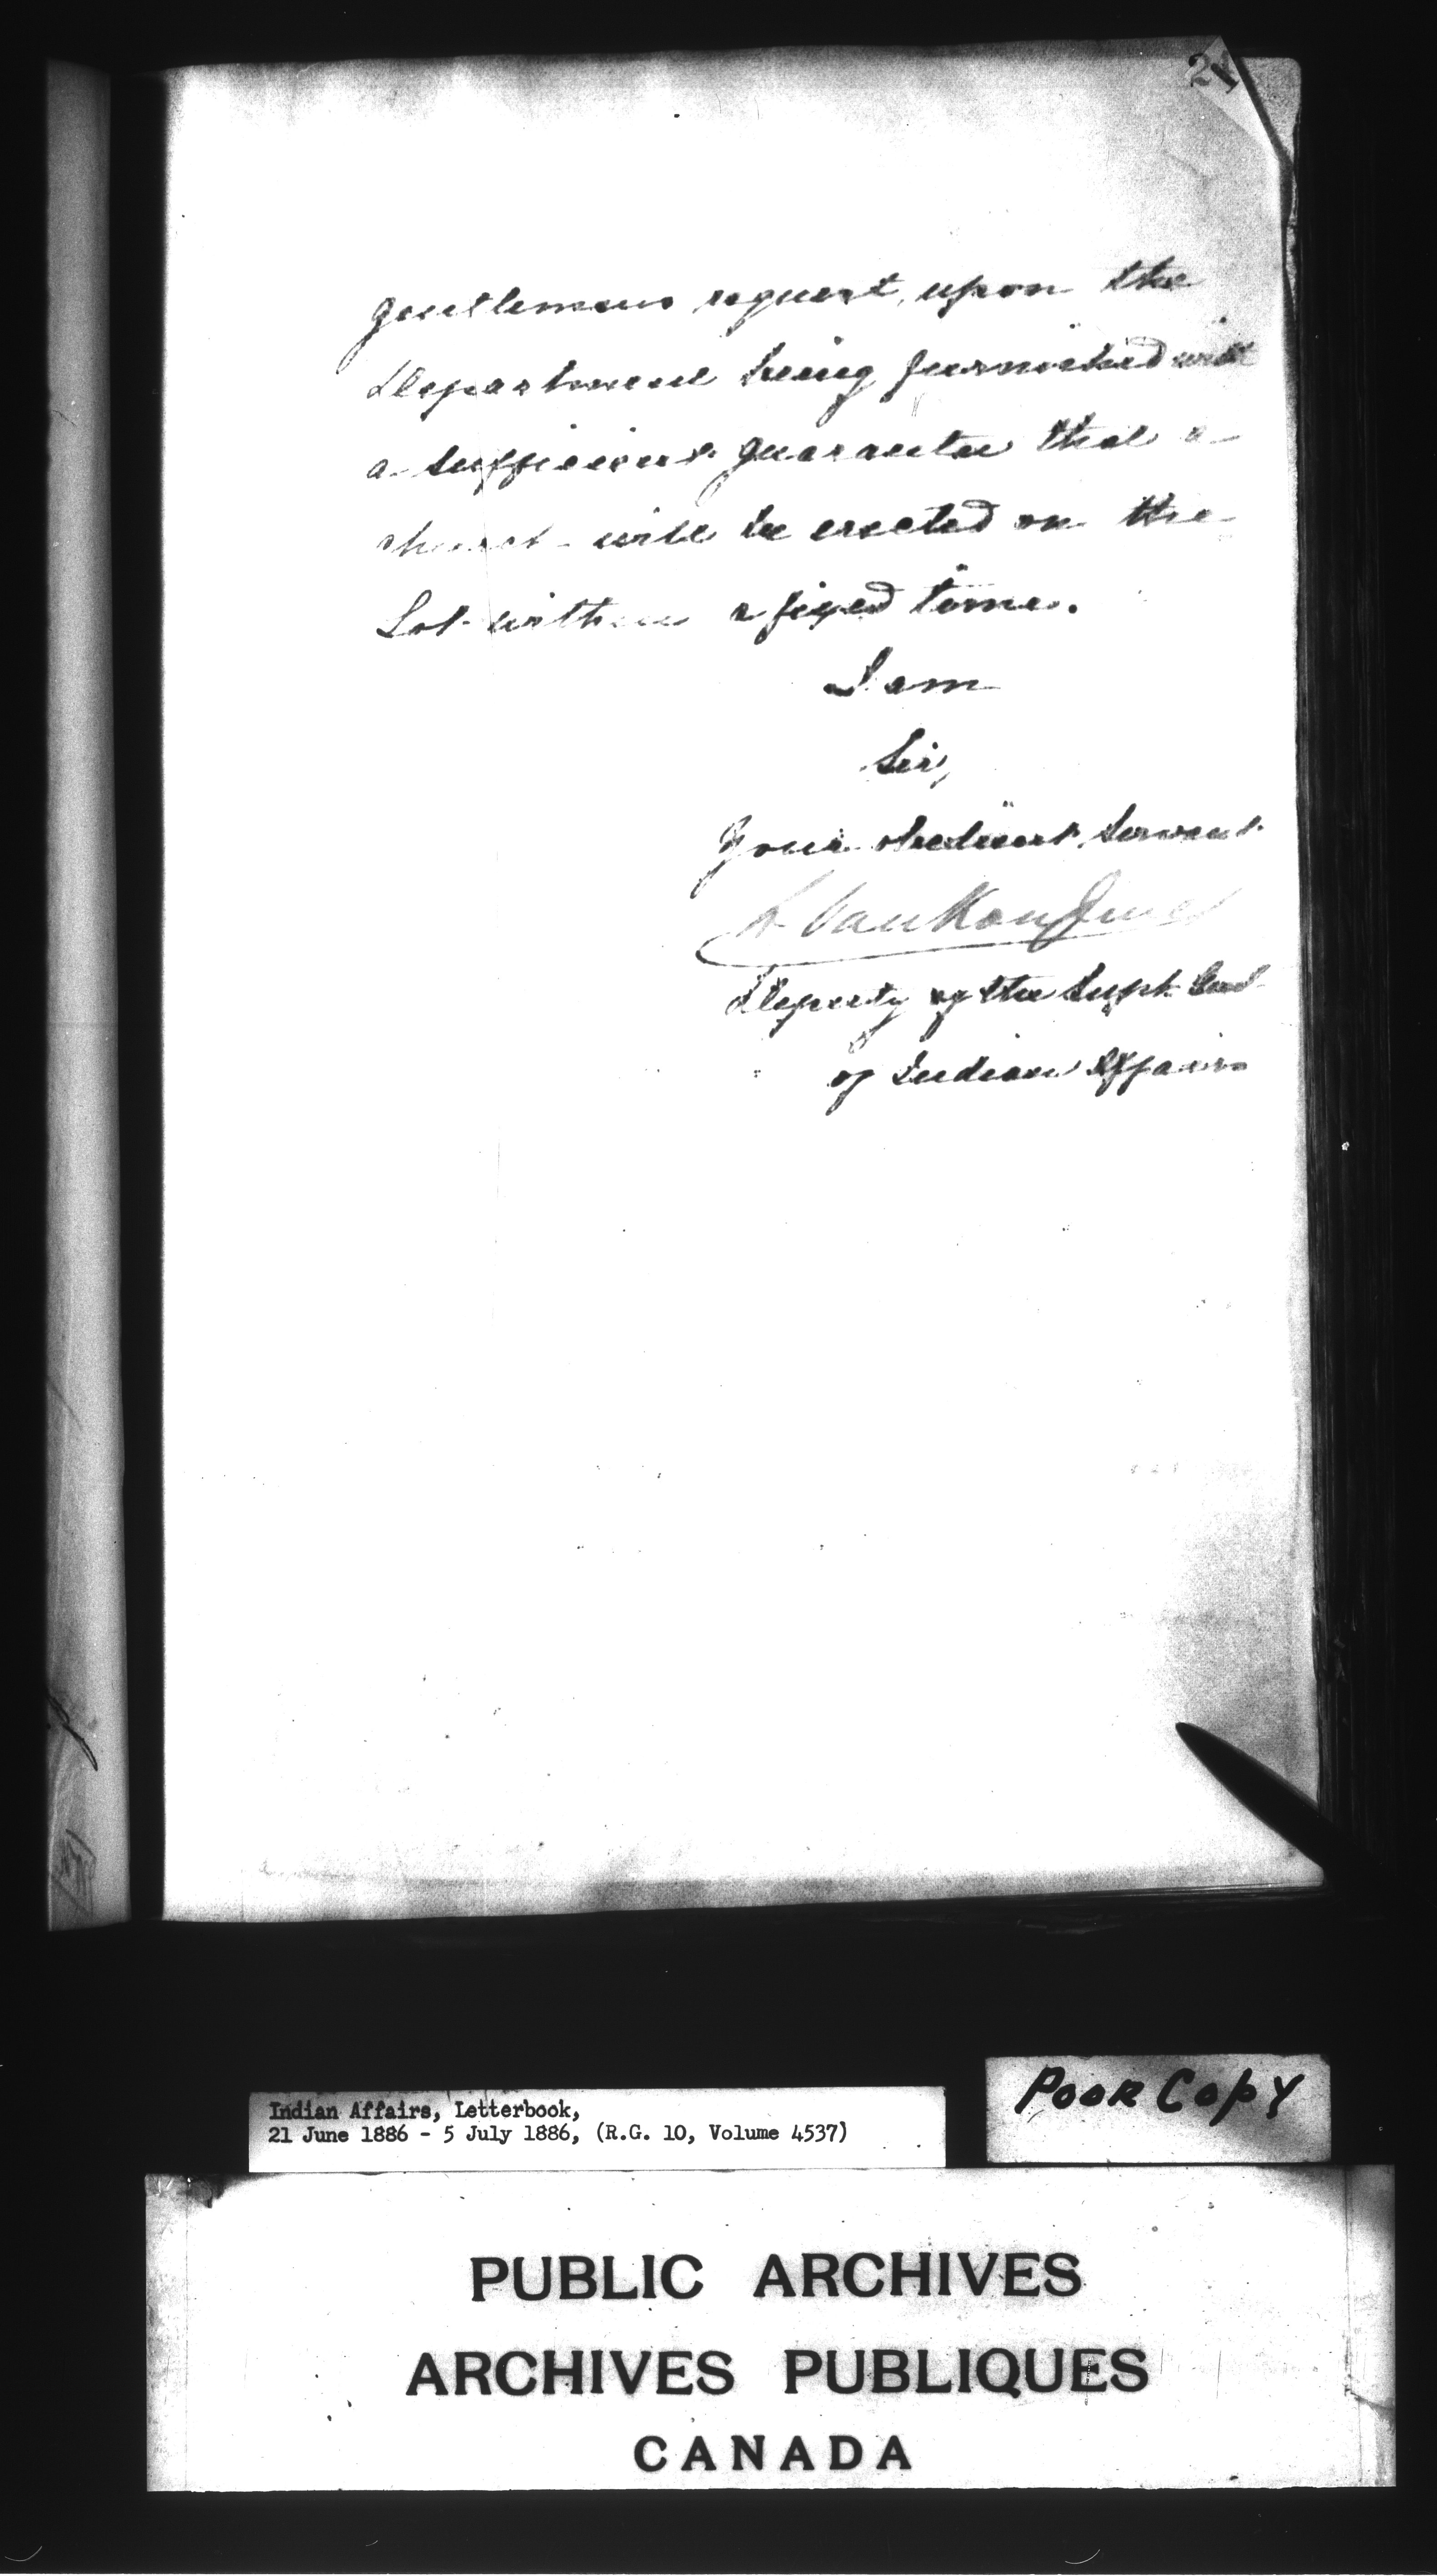 gentlemans request, upon the
Department being furnished with
a sufficient guarantee that a
church will be erected on the
Lot within a fixed time.
I am
Sir,
Your obedient servant
L. VanKoughnet
Deputy of the Supt. Genl
of Indian Affairs
Poor Copy
Indian Affairs, Letterbook,
21 June 1886 - 5 July 1886, (R.G. 10, Volume 4537)
PUBLIC ARCHIVES
ARCHIVES PUBLIQUES
CANADA